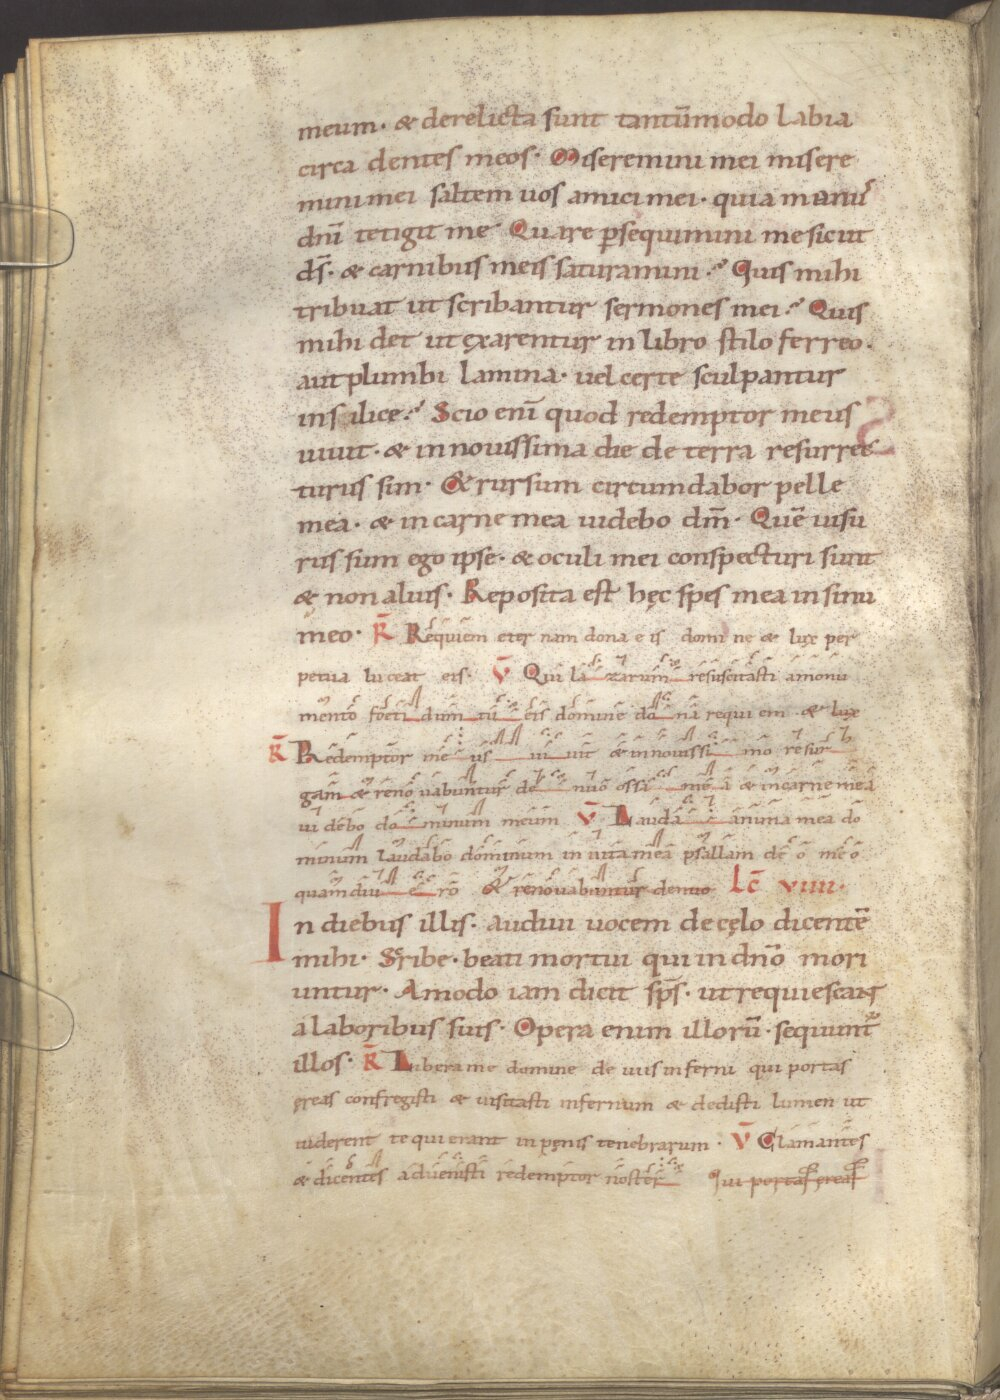 meum· & derelicta sunt tantūmodo labia
circa dentes meos· Miseremini mei misere
mini mei saltem uos amici mei· quia manuſ
dnī tetigit me· Quare p̄sequimini me sicut
dſ̄· & carnibus meis saturamini·? Quis mihi
tribuat ut scribantur sermones mei·? Quis
mihi det ut exarentur in libro stilo ferreo·
aut plumbi lamina· uel certe sculpantur
in silice·? Scio enī quod redemptor meus
uiuit· & in nouissima die de terra resurrec
turus sim· Et rursum circumdabor pelle
mea· & in carne mea uidebo dm̄· Quē uisu
rus sum ego ipse· & oculi mei conspecturi sunt
& non alius· Reposita est hęc spes mea in sinu
meo· R̄ Requiem eternam dona eis domine & lux per
petua luceat eis· V̄ Qui lazarum resuscitasti a monu
mento foetidum tu eis domine dona requiem· & lux
R̄ Redemptor meus uiuit & in nouissimo resur
gam & renouabuntur denuo ossa mea & in carne mea
uidebo dominum meum V̄ Lauda anima mea do
minum laudabo dominum in uita mea psallam deo meo
quamdiu ero & renouabuntur denuo Lc̄ viiii·
In diebus illis· audiui uocem de cęlo dicentē
mihi· Scribe· beati mortui qui in dnō mori
untur· Amodo iam dicit sp̄s· ut requiescant
a laboribus suis· Opera enim illorū· sequunt᷑
illos· R̄ Libera me domine de uiis inferni qui portas
ęreas confregisti & uisitasti infernum & dedisti lumen ut
uiderent te qui erant in pęnis tenebrarum· V̄ Clamantes
& dicentes aduenisti redemptor noster Qui portas ęreas